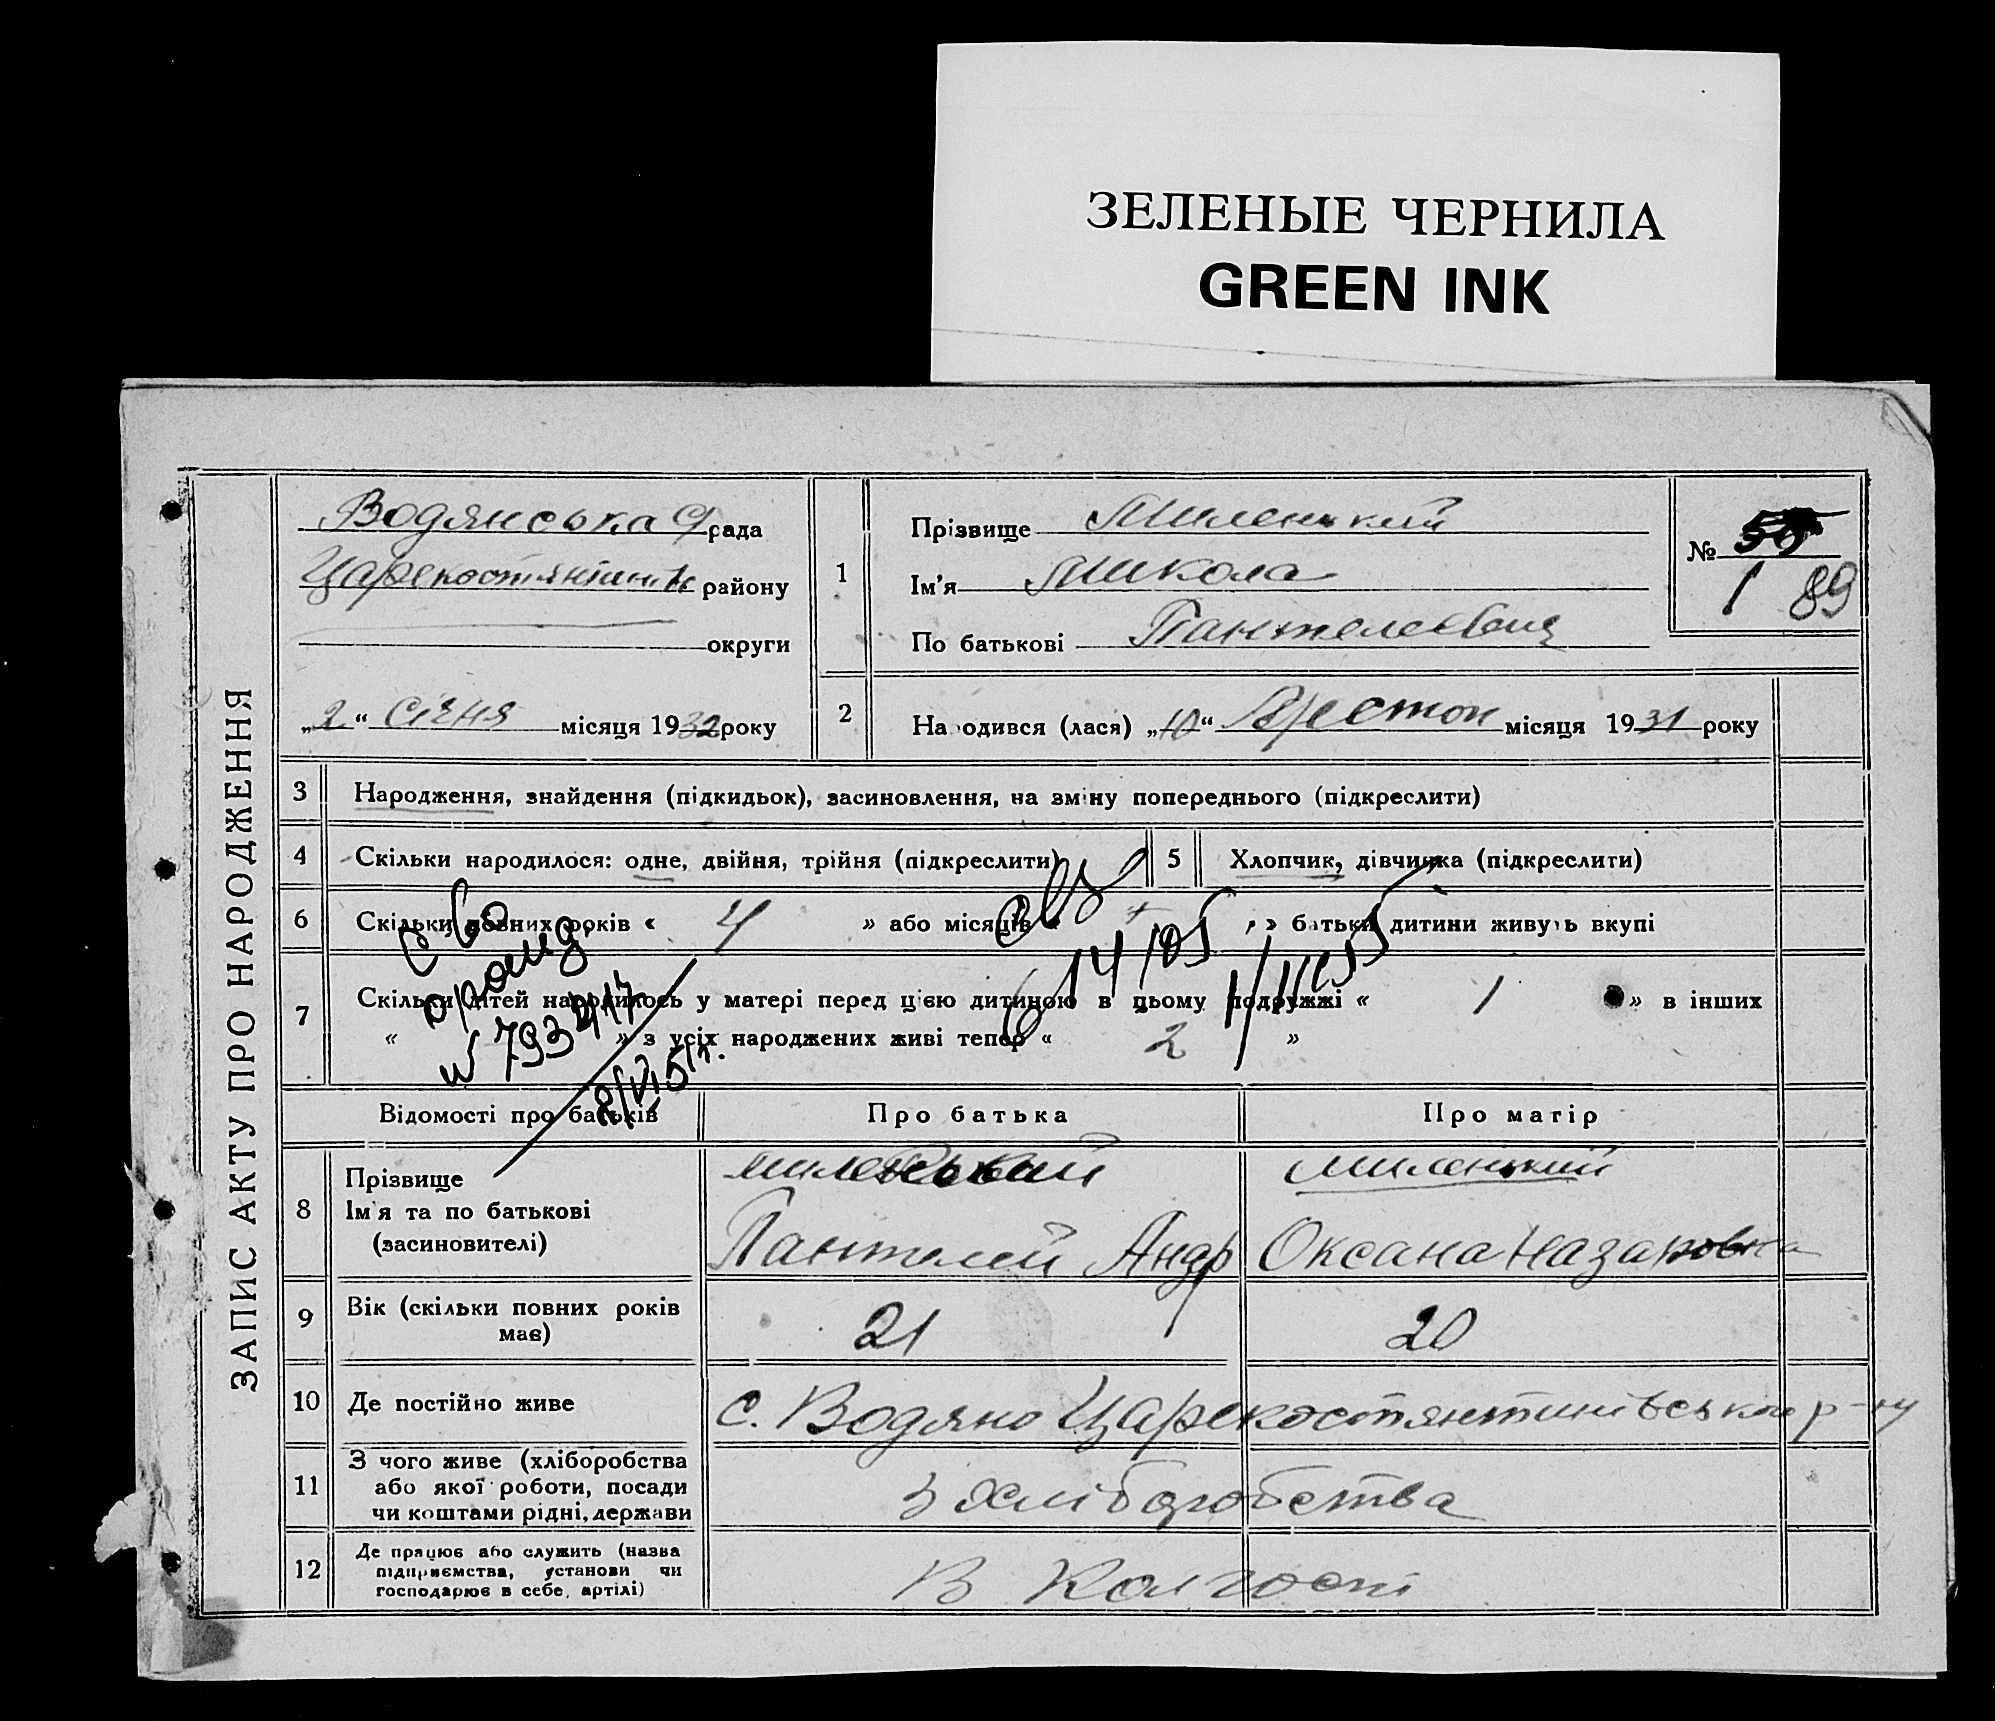 ЗЕЛЕНЫЕ ЧЕРНИЛА
GREEN INK
ЗАПИС АКТУ ПРО НАРОДЖЕННЯ
Водянська рада
Царекостянтинів району
округи
„2“ Січня місяця 1932 року
1
Прізвище Миленький
Ім'я Микола
По батькові Пантелеєвич
№
1 89
2
Народився (лася) „10“ місяця 1931 року
3 Народження, знайдення (підкидьок), засиновлення, на зміну попереднього (підкреслити)
4 Скільки народилося: одне, двійня, трійня (підкреслити)
5 Хлопчик, дівчинка (підкреслити)
6 Скільки повних років « 4 » або місяців « » батьки дитини живуть вкупі
7 Скільки дітей народилось у матері перед цією дитиною в цьому подружжі « 1 » в інших
« » з усіх народжених живі тепер « 2 »
с/во
№ 793417
8/VI 51 г.
Відомості про батьків
Про батька
Про матір
8 Прізвище
Ім'я та по батькові
(засиновителі)
Миленький
Пантелей Андр
Миленький
Оксана Назаровна
9 Вік (скільки повних років
має)
21
20
10 Де постійно живе
с. Водяно Царекостянтинівськ р-ну
11 З чого живе (хліборобства
або якої роботи, посади
чи коштами рідні, держави
З хліборобства
12 Де працює або служить (назва
підприємства, установи чи
господарює в себе, артілі)
В Колгоспі